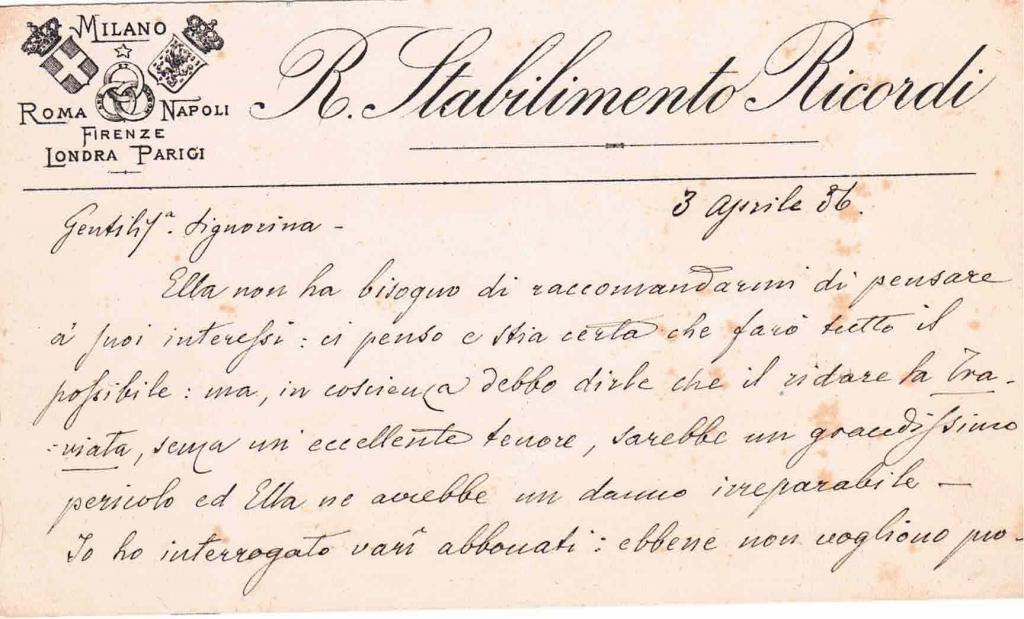 MILANO
ROMA NAPOLI
FIRENZE
LONDRA PARIGI
R. Stabilimento Ricordi
3 Aprile 86.
Gentiliſª. Signorina -
Ella non ha bisogno di raccomandarmi di pensare
a' suoi intereſsi: ci penso e stia certa che farò tutto il
poſsibile: ma, in coscienza debbo dirle che il ridare la Tra-
:viata, senza un' eccellente tenore, sarebbe un grandiſsimo
pericolo ed Ella ne avrebbe un danno irreparabile —
Io ho interrogato varî abbonati: ebbene non vogliono pro-